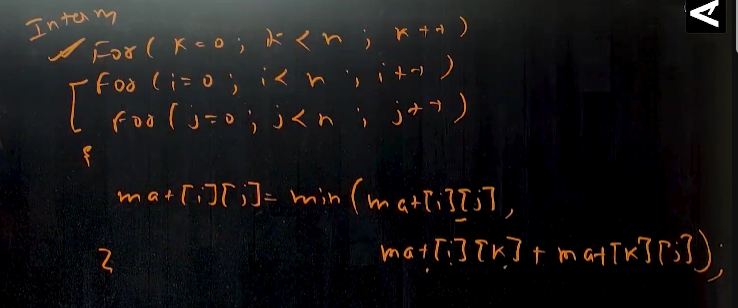 Interm
For ( k = 0 ; k < n ; k++ )
for ( i = 0 ; i < n ; i++ )
for ( j = 0 ; j < n ; j++ )
{
mat[i][j] = min ( mat[i][j] ,
} mat[i][k] + mat[k][j] ) ;